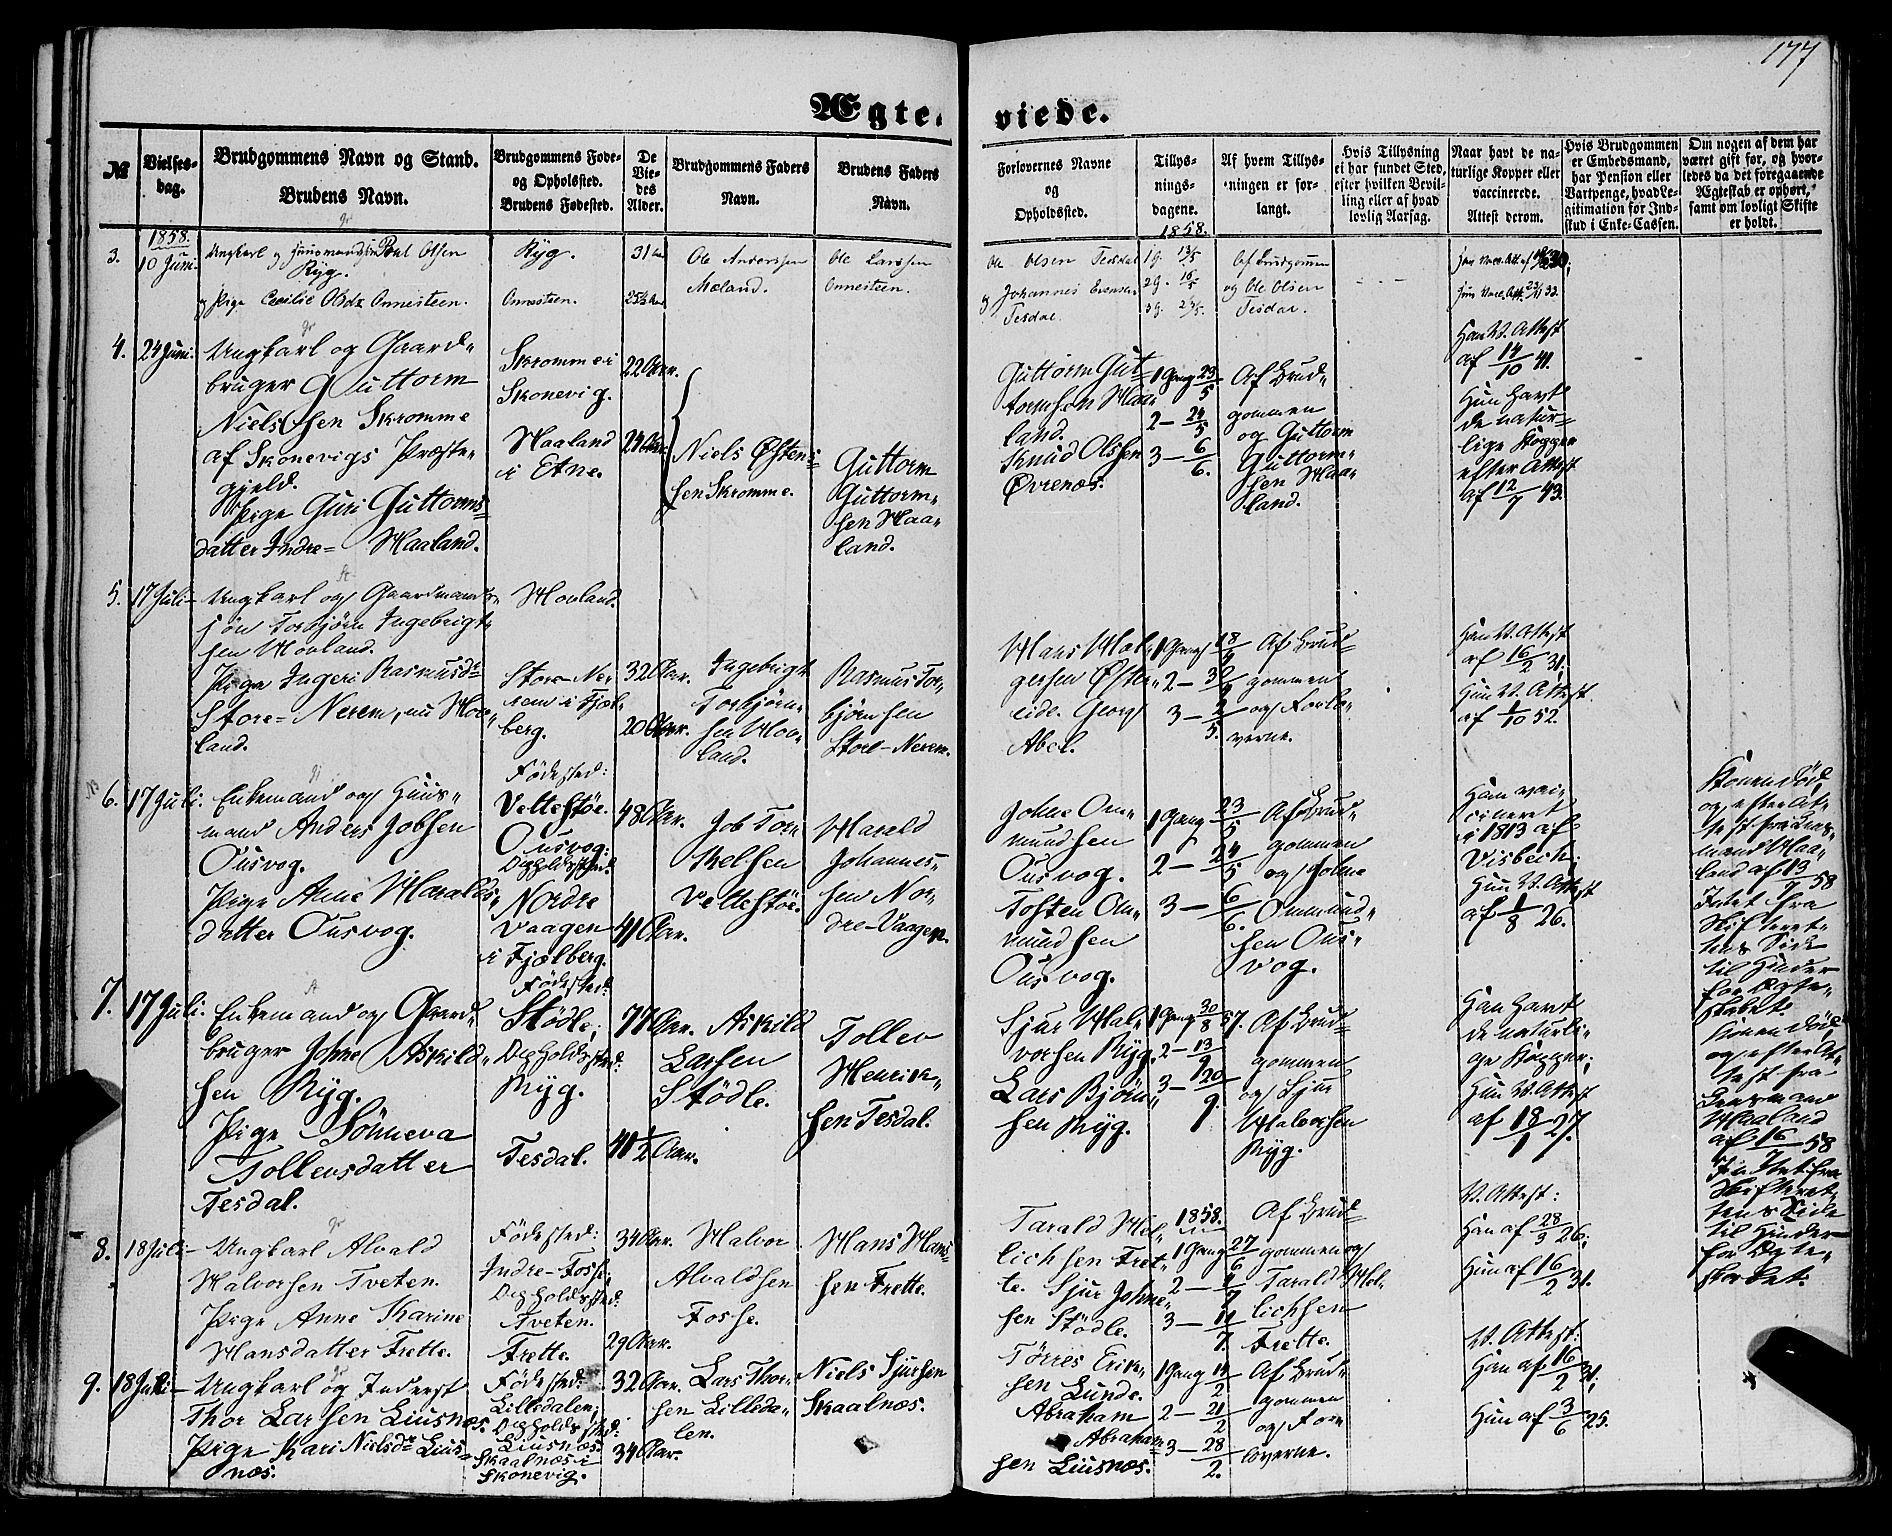 177
Ægteviede.
№
Vielses-
dag.
Brudgommens Navn og Stand.
Brudens Navn.
Brudgommens Føde-
og Opholssted.
Brudens Fødested.
De
Vie-
des
Alder.
Brudgommens Faders
Navn.
Brudens Faders
Navn.
Forlovernes Navne
og
Opholdssted.
Tillys-
nings-
dagene.
Af hvem Tillys-
ningen er for-
langt.
Hvis Tillysning
ei har fundet Sted,
efter hvilken Bevil-
ling eller af hvad
lovlig Aarsag.
Naar havt de na-
turlige Kopper eller
vaccinerede.
Attest derom.
Hvis Brudgommen
er Embedsmand,
har Pension eller
Vartpenge, hvad Le-
gitimation for Ind-
skud i Enke-Cassen.
Om nogen af dem har
været gift før, og hvor-
ledes da det foregaaende
Ægteskab er ophørt,
samt om lovligt Skifte
er holdt.
1858.
1858.
3.
10 Juni.
Ungkarl og Olsen
Ryg.
og Pige Cecilie Olsdr Onnesteen.
Ryg.
Onnesteen.
31
Ole Anderssen
Mæland.
Ole Larssen
Onnesteen.
Ole Olsen Tesdal
og Johannes
Tesdal.
1 g. 13/5
2 g. 16/5
Af Brudgommen
og Ole Olsen
Tesdal.
4.
24 Juni.
Ungkarl og Gaard-
bruger Guttorm
Nielssen Skromme
af Skonevigs Præste-
gjeld.
Pige Guri Guttorms-
datter Indre-Haaland.
Skromme i
Skonevig.
Haaland
i Etne.
22 Aar.
24 Aar.
Niels Østens-
sen Skromme.
Guttorm
Guttorm-
sen Haa-
land.
Guttorm Gut-
tormsen Haa-
land.
Knud Olssen
Øvrenæs.
1 Gang 23/5
2 — 24/5
3 — 6/6.
Af Brud-
gommen
og Guttorm
Guttorm-
sen Haa-
land.
Han V. Attest
af 14/10 41.
Hun havt
de natur-
lige Kopper
efter Attest
af 12/7 43.
5.
17 Juli
Ungkarl og Gaardmands-
søn Torbjørn Ingebrigt-
sen Hovland.
Pige Ingeri Rasmusdr
Store-Nerem, nu Hov-
land.
Hovland.
Store-Ne-
rem i Fjel-
berg.
32 Aar.
20 Aar.
Ingebrigt
Torbjørn-
sen Hov-
land.
Rasmus Tor-
bjørnsen
Store-Nerem.
Hans Hal-
gersen Øster-
eide. Georg
Abel.
1 Gang 18/4
3 — 2/5.
Af Brud-
gommen
og Forlo-
verne.
Han V. Attest
af 16/2 31.
Hun V. Attest
af 1/10 52.
6.
17 Juli.
Enkemand og Huus-
mand Anders Jobsen
Ousvog.
Pige Anne Haralds-
datter Ousvog.
Fødested:
Velttestøe.
Ousvog:
Opholdssted.
Nordre
Vaagen
i Fjelberg.
48 Aar.
41 Aar.
Job Tor-
kelsen
Velttestøe.
Harald
Johannes-
sen Nor-
dre-Vaagen.
Johne Om-
mundsen
Ousvog.
Tosten Om-
mundsen
Ousvog.
1 Gang 23/5
2 — 24/5
3 — 6/6.
Af Brud-
gommen
og Johne
Ommund-
sen Ous-
vog.
Han vac-
cineret
i 1813 af
Visbech;
Hun V. Attest
af 1/8 26.
Konen død
og efter At-
test fra Lens-
mand Haa-
land af 13/7 58
Intet fra
Skifteret-
tens Side
til Hinder
for Ægte-
skabet.
7.
17 Juli.
Enkemand og Gaard-
bruger Johne Askild-
sen Ryg.
Pige Sönneva
Tollevsdatter
Tesdal.
Fødested:
Stødle;
Opholdssted:
Ryg.
Tesdal.
77 Aar.
41 1/2 Aar.
Askild
Larsen
Stødle.
Tollev
Henrik-
sen Tesdal.
Sjur Hal-
vorsen Ryg.
Lars Bjørn-
sen Ryg.
1 Gang 30/8 57.
2 — 13/9
3 — 20/9.
Af Brud-
gommen
og Sjur
Halvorsen
Ryg.
Han havt
de naturli-
ge Kopper;
Hun V. Attest
af 18/1 27.
Konen død
og efter At-
test fra
Lensmand
Haaland
af 16/7 58
Intet fra
Skifteret-
tens Side
til Hinder
for Ægte-
skabet.
8.
18 Juli
Ungkarl Alvald
Halvorsen Tveten.
Pige Anne Karine
Hansdatter Frette.
Fødested:
Indre-Fosse.
Opholdssted:
Tveten.
Frette.
34 Aar.
29 Aar.
Halvor
Alvaldsen
Fosse.
Hans Hans-
sen Frette.
Tarald Mel-
lichsen Fret-
te. Sjur Johne-
sen Stødle.
1858.
1 Gang 27/6
2 — 4/7
3 — 11/7.
Af Brud-
gommen og
Tarald Mel-
lichsen
Frette.
V. Attest:
Han af 28/3 26;
Hun af 16/2 31.
9.
18 Juli
Ungkarl og Inderst
Thor Larsen Liusnæs.
Pige Kari Nielsdr Lius-
næs.
Fødested:
Lilledalen;
Opholdssted:
Liusnæs.
Skaalnæs i
Skonevig.
32 Aar.
34 Aar.
Lars Thor-
sen Lilleda-
len.
Niels Sjursen
Skaalnæs.
Tørres Erik-
sen Lunde.
Abraham
Abraham-
sen Liusnæs.
1 Gang 14/2
2 — 21/2
3 — 28/2.
Af Brud-
gommen
og For-
loverne.
V. Attest:
Han af 16/2 31;
Hun af 3/6 25.